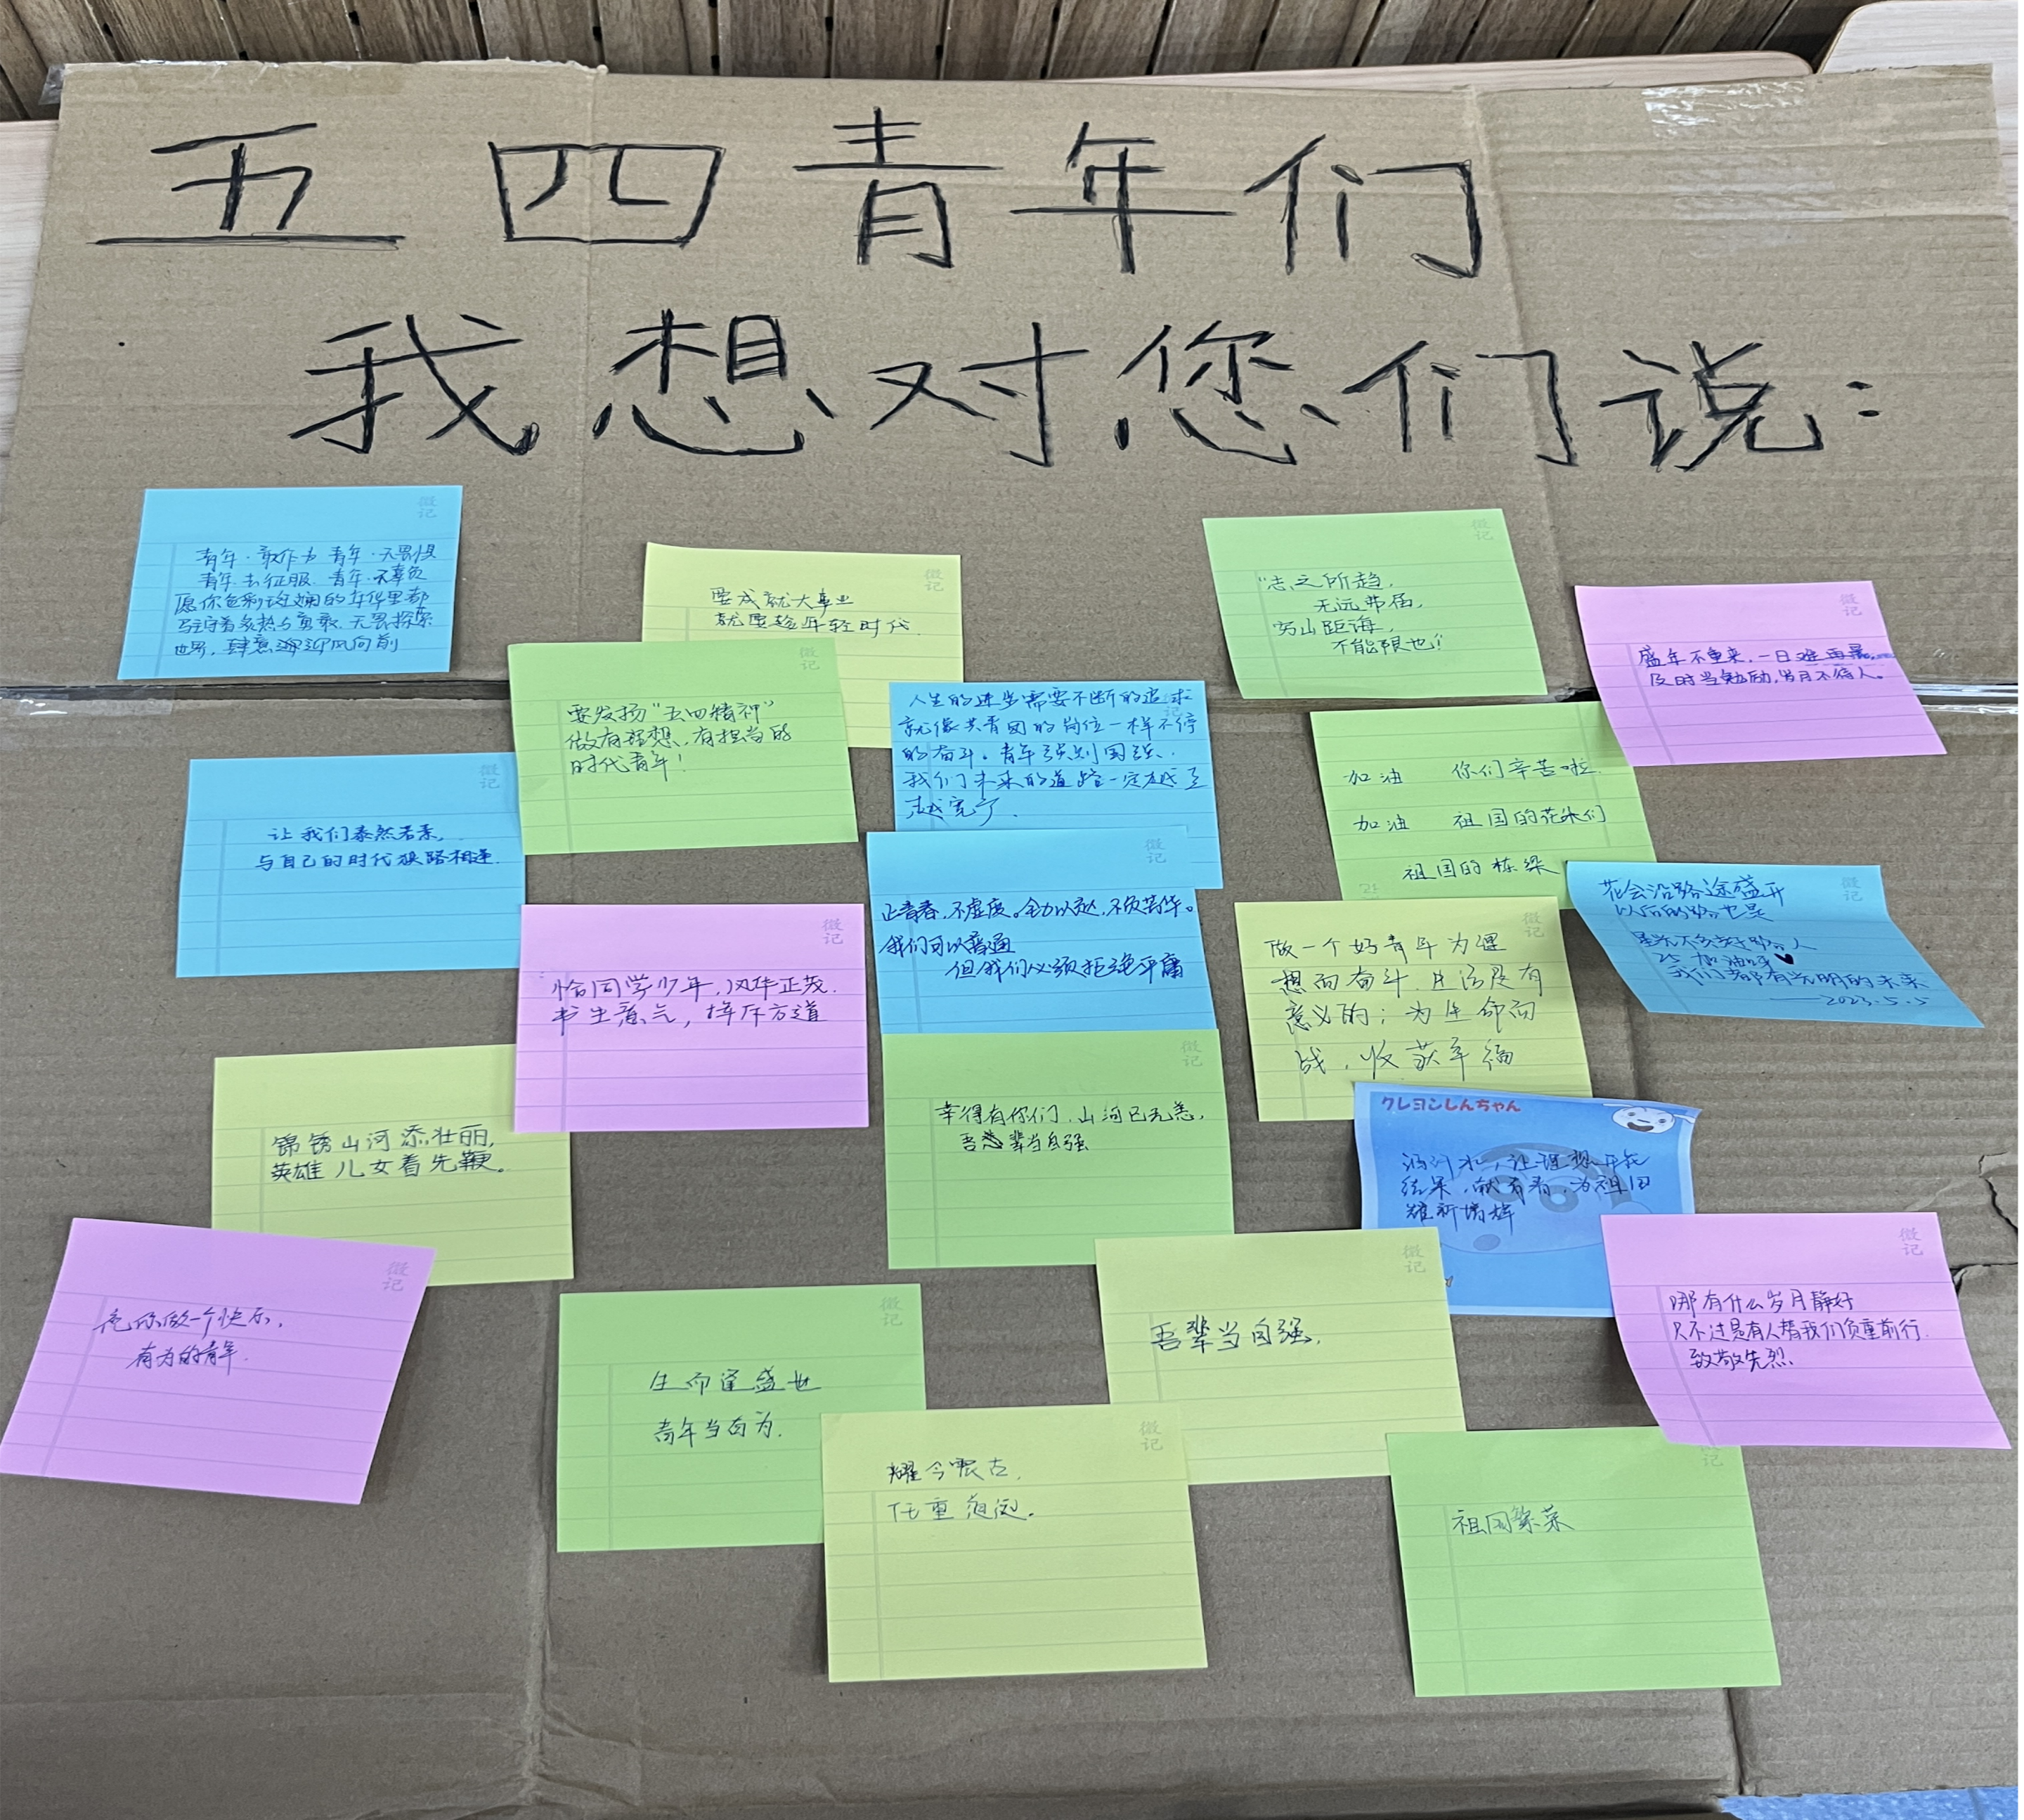 五四青年们
我想对您们说：
青年·敢作为 青年·无畏惧
青年·去征服 青年·不辜负
愿你色彩斑斓的年华里都
驻守着炙热与勇敢，无畏探索
世界，肆意 迎风向前
要成就大事业
就要趁年轻时代.
“志之所趋，
无远弗届，
穷山距海，
不能限也！
盛年不重来，一日难再晨。
及时当勉励，岁月不待人。
要发扬“五四精神”
做有理想、有担当的
时代青年！
人生的进步需要不断的追求
就像共青团的岗位一样不停
的奋斗。青年强则国强、
我们未来的道路一定越走
越宽广.
加油 你们辛苦啦
加油 祖国的花朵们
祖国的栋梁
让我们泰然若素，
与自己的时代狭路相逢.
正青春，不虚度。全力以赴，不负芳华。
我们可以普通
但我们必须拒绝平庸
花会沿路途盛开
以后的路也是
星光不负赶路人
加油呀♥
我们都有光明的未来
——2023.5.5
恰同学少年，风华正茂.
书生意气，挥斥方遒
做一个好青年为理
想而奋斗.生活是有
意义的；为生命而
战，收获幸福
锦锈山河添壮丽，
英雄儿女着先鞭。
幸得有你们，山河已无恙，
吾 辈当自强
クレヨンしんちゃん
洒汗水，让理想开花
结果，献青春，为祖国
维新增辉
做一个快乐，
有为的青年.
生而逢盛世
青年当有为.
吾辈当自强.
哪有什么岁月静好
只不过是有人替我们负重前行.
致敬先烈.
耀今震古，
任重道远.
祖国繁荣